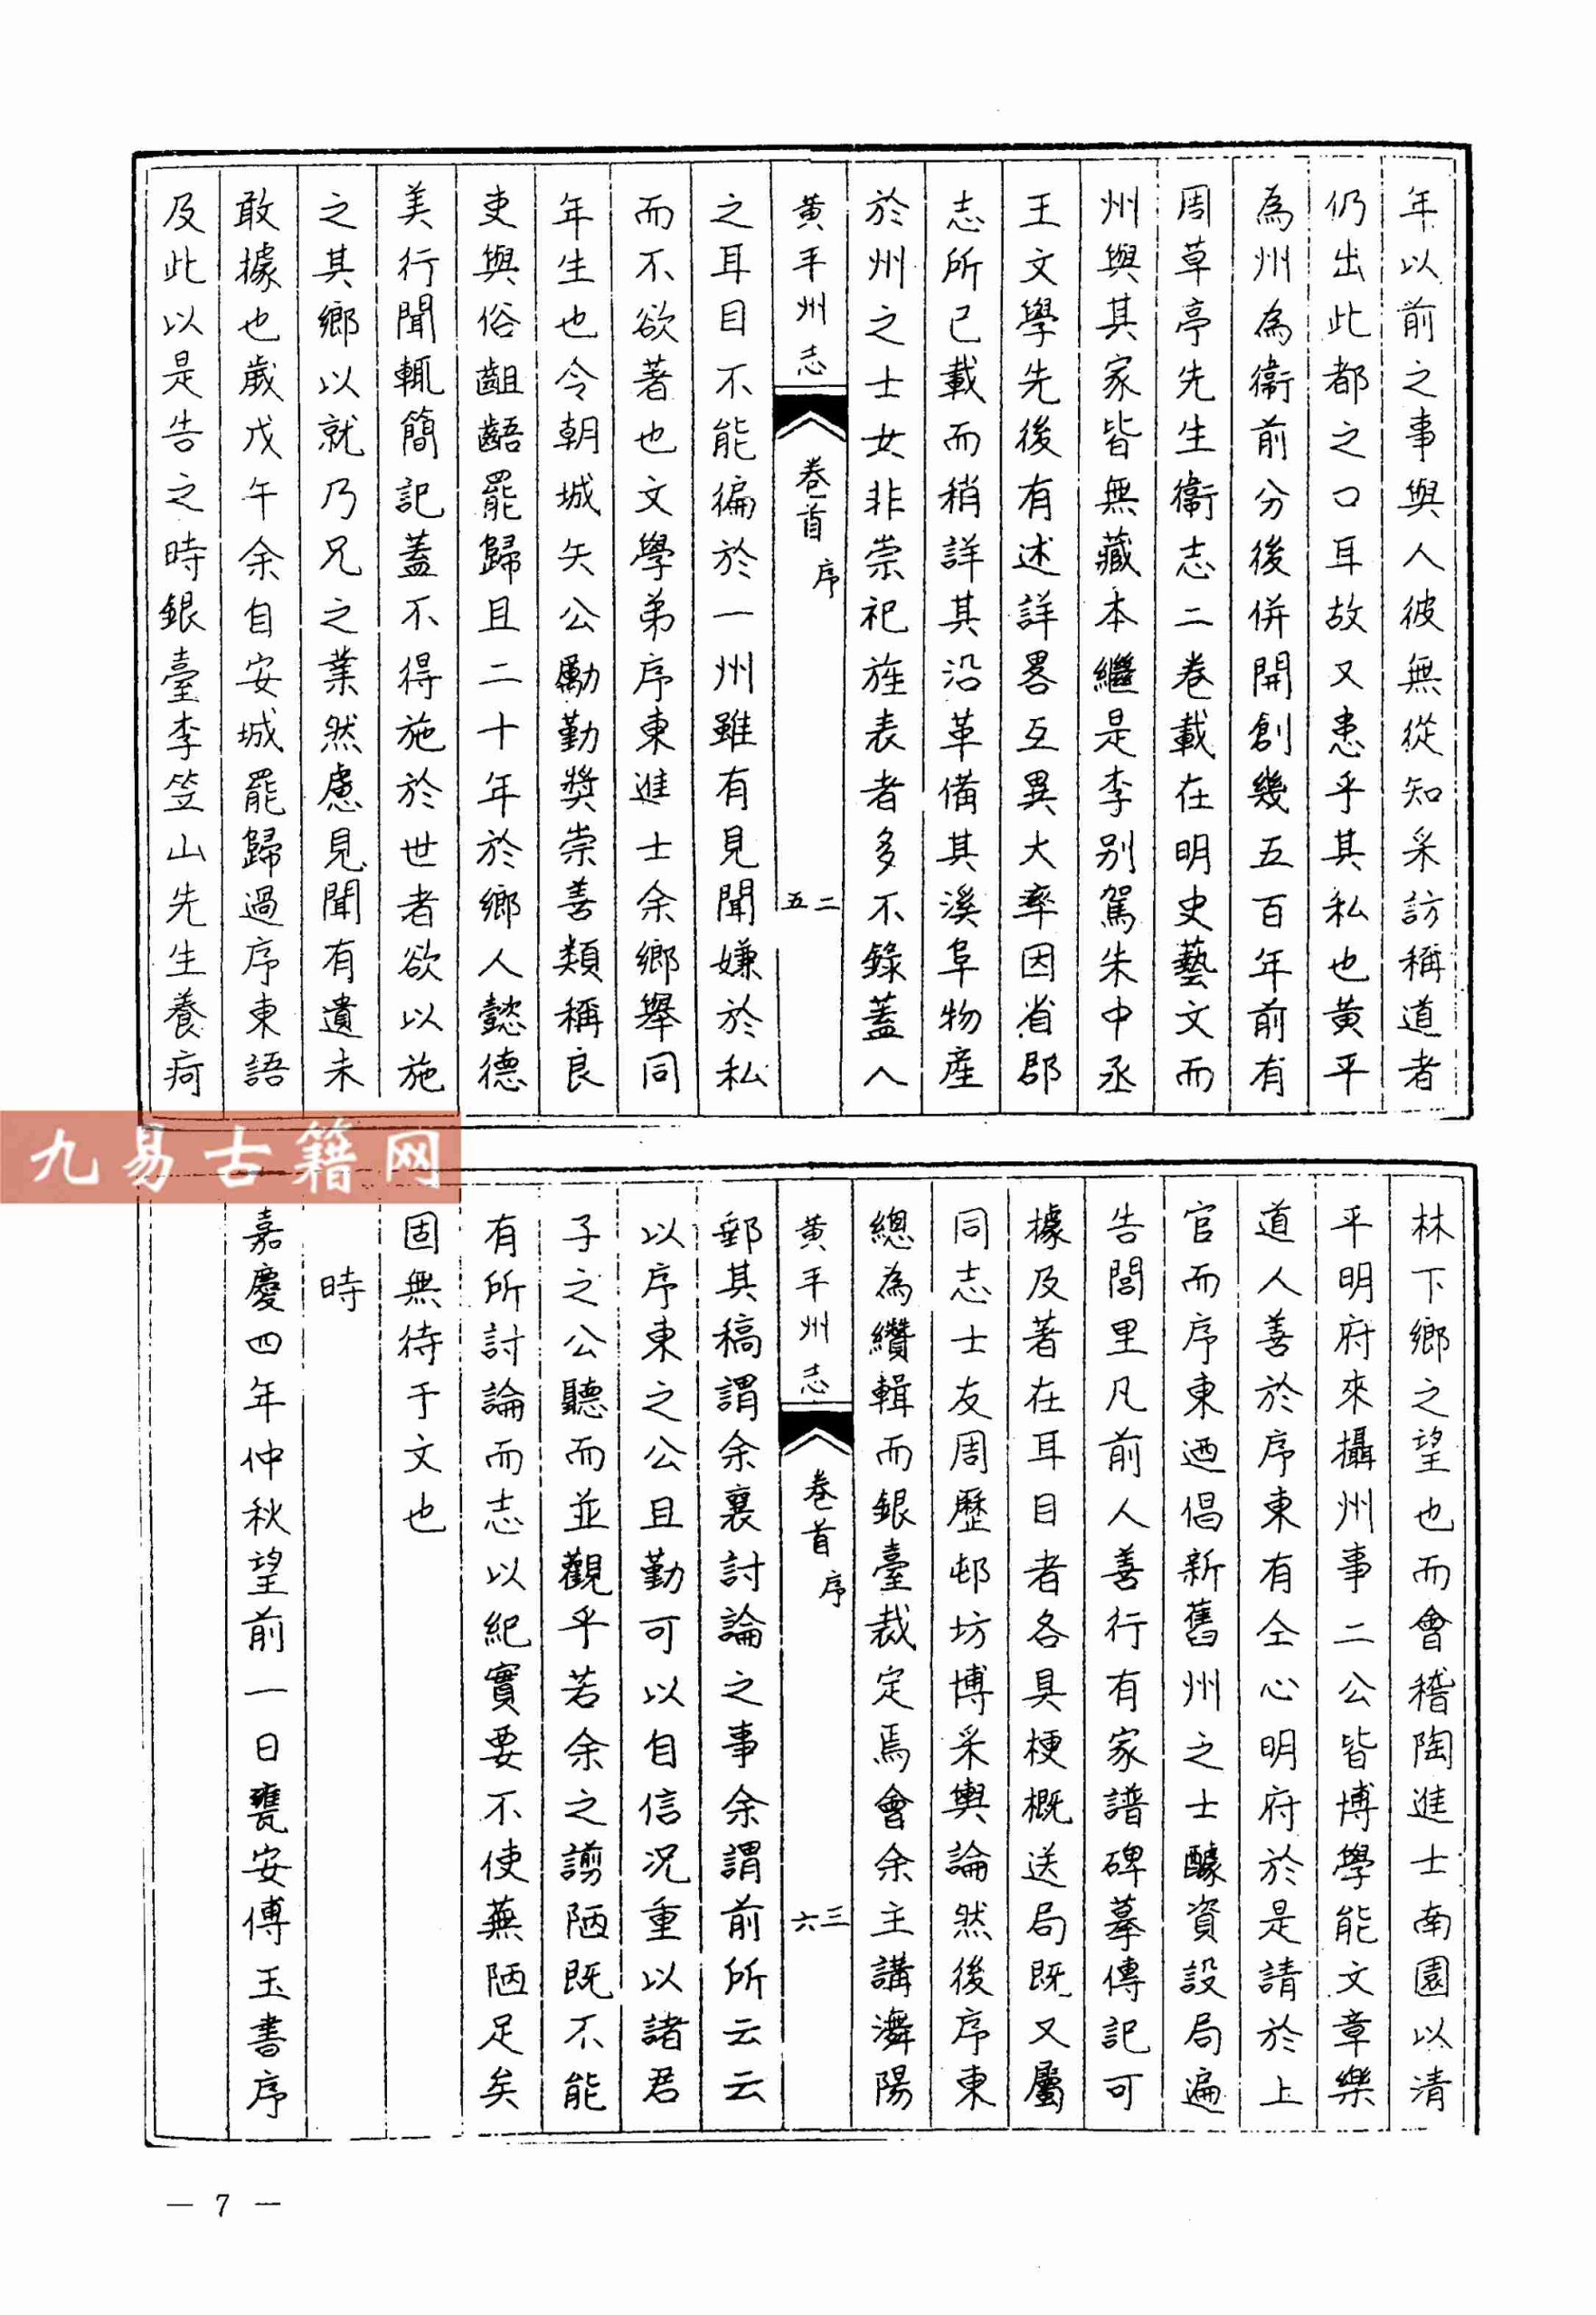 年以前之事與人彼無從知采訪稱道者
仍出此都之口耳故又患乎其私也黄平
為州為衞前分後併開創幾五百年前有
周草亭先生衞志二卷載在明史藝文而
州與其家皆無藏本繼是李别駕朱中丞
王文學先後有述詳畧互異大率因省郡
志所已載而稍詳其沿革備其溪阜物産
於州之士女非崇祀旌表者多不錄蓋人
黄平州志
卷首 序
二五
之耳目不能徧於一州雖有見聞嫌於私
而不欲著也文學弟序東進士余鄉舉同
年生也令朝城矢公勵勤獎崇善類稱良
吏與俗齟齬罷歸且二十年於鄉人懿德
美行聞輒簡記蓋不得施於世者欲以施
之其鄉以就乃兄之業然慮見聞有遺未
敢據也歲戊午余自安城罷歸過序東語
及此以是告之時銀臺李笠山先生養疴
林下鄉之望也而會稽陶進士南園以清
平明府來攝州事二公皆博學能文章樂
道人善於序東有仝心明府於是請於上
官而序東迺倡新舊州之士醵資設局遍
告閭里凡前人善行有家譜碑摹傳記可
據及著在耳目者各具梗概送局既又屬
同志士友周歷邨坊博采輿論然後序東
總為纘輯而銀臺裁定焉會余主講㵲陽
黄平州志
卷首 序
三六
郵其稿謂余襄討論之事余謂前所云云
以序東之公且勤可以自信况重以諸君
子之公聽而並觀乎若余之謭陋既不能
有所討論而志以紀實要不使蕪陋足矣
固無待于文也
時
嘉慶四年仲秋望前一日甕安傅玉書序
— 7 —
九易古籍网